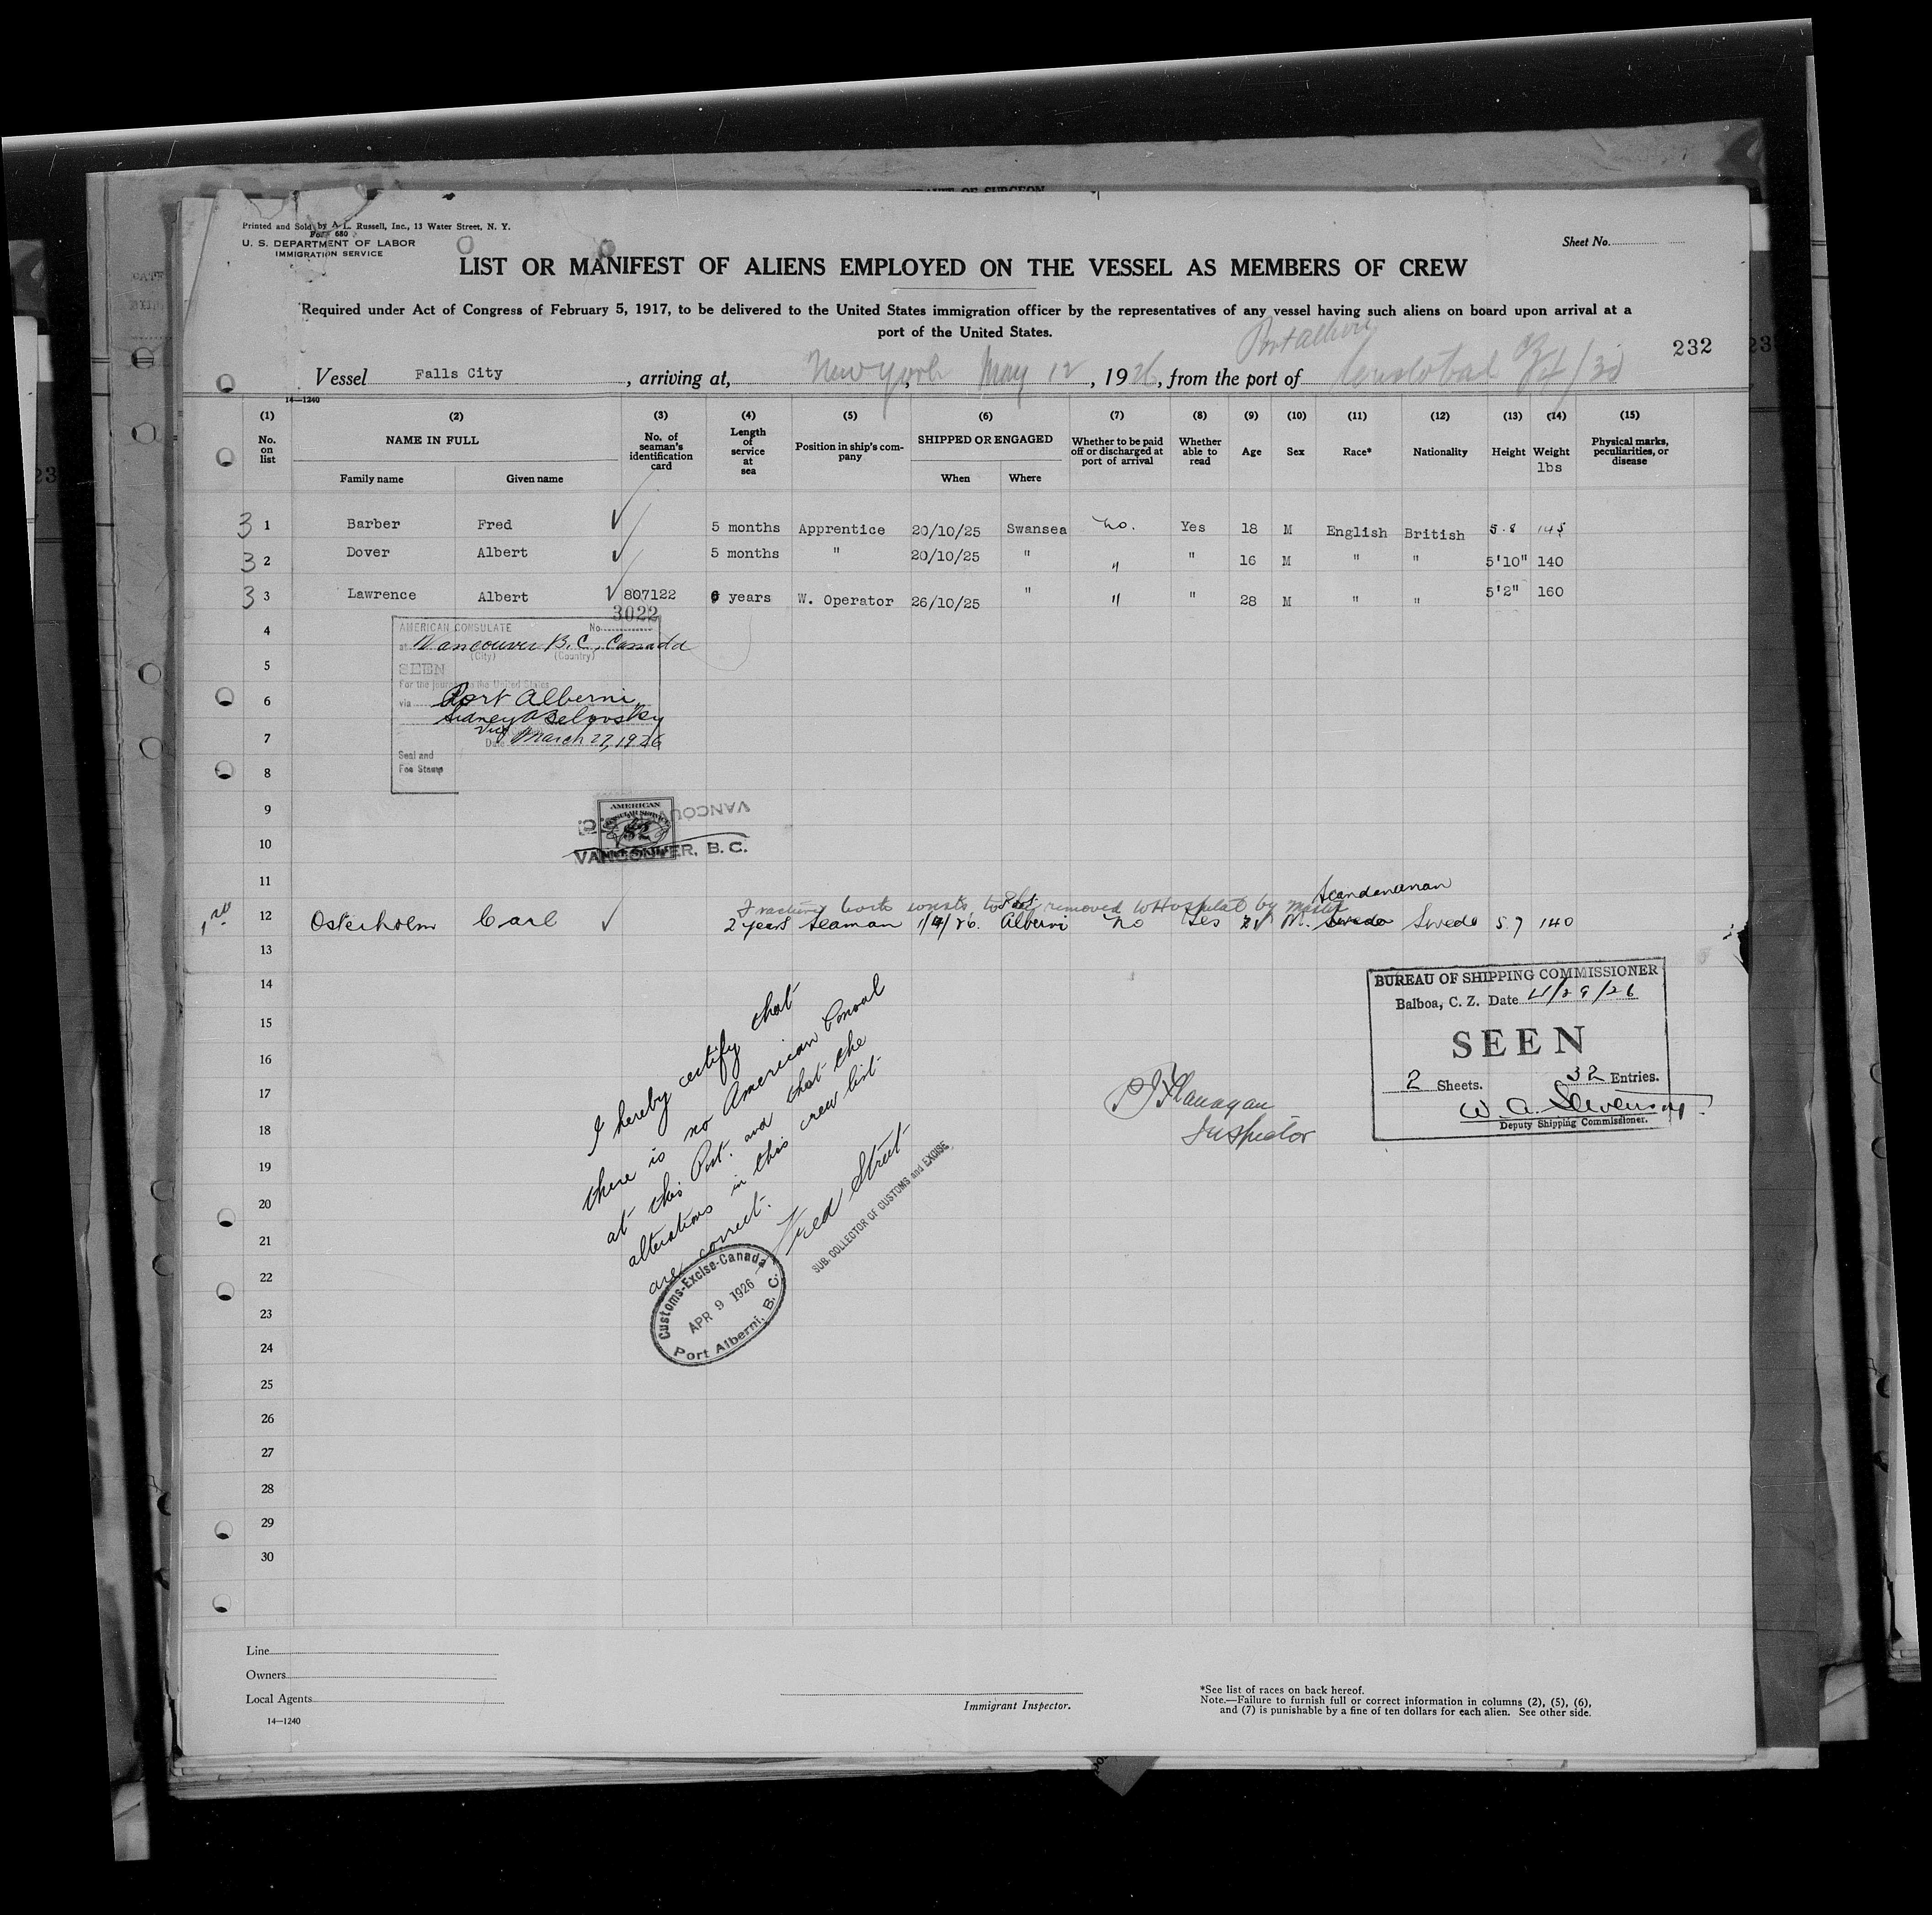 Printed and Sold by A. L. Russell, Inc., 13 Water Street, N. Y.
Form 680
U. S. DEPARTMENT OF LABOR
IMMIGRATION SERVICE
Sheet No.
LIST OR MANIFEST OF ALIENS EMPLOYED ON THE VESSEL AS MEMBERS OF CREW
Required under Act of Congress of February 5, 1917, to be delivered to the United States immigration officer by the representatives of any vessel having such aliens on board upon arrival at a
port of the United States.
Port Alberni
232
Vessel Falls City, arriving at, New York, May 12, 1926, from the port of Cristobal
14—1240
(1) (2) (3) (4) (5) (6) (7) (8) (9) (10) (11) (12) (13) (14) (15)
No. on list NAME IN FULL No. of seaman's identification card Length of service at sea Position in ship's company SHIPPED OR ENGAGED Whether to be paid off or discharged at port of arrival Whether able to read Age Sex Race* Nationality Height Weight lbs Physical marks, peculiarities, or disease
Family name Given name When Where
3 1 Barber Fred 5 months Apprentice 20/10/25 Swansea No. Yes 18 M English British 5.8 145
3 2 Dover Albert 5 months " 20/10/25 " " " 16 M " " 5'10" 140
3 3 Lawrence Albert 807122 years W. Operator 26/10/25 " " " 28 M " " 5'2" 160
3022
4
AMERICAN CONSULATE No.
at Vancouver B.C., Canada
(City) (Country)
5
SEEN
For the journey to the United States
6
via Port Alberni
7
Date March 27, 1926
Seal and
Fee Stamp
8
9
AMERICAN
CONSULAR SERVICE
$2
VANCOUVER, B.C.
10
VANCOUVER, B. C.
11
Scandanavian
Fracture both wrists removed to Hospital by Master
Port
12 Osterholm Carl 2 years Seaman 1/4/26. Alberni No Yes 21 M. Swede Swede 5.7 140
13
14
15
16
17
18
19
20
21
22
23
24
25
26
27
28
29
30
I hereby certify that
there is no American Consul
at this Port. and that the
alterations in this crew list
are correct.
Fred Street
SUB. COLLECTOR OF CUSTOMS and EXCISE
Customs-Excise-Canada
APR 9 1926
Port Alberni, B. C.
P J Flanagan
Inspector
BUREAU OF SHIPPING COMMISSIONER
Balboa, C. Z. Date 4/29/26
SEEN
2 Sheets. 32 Entries.
W. A. Stevenson
Deputy Shipping Commissioner.
Line
Owners
Local Agents
14—1240
Immigrant Inspector.
*See list of races on back hereof.
Note.—Failure to furnish full or correct information in columns (2), (5), (6),
and (7) is punishable by a fine of ten dollars for each alien. See other side.